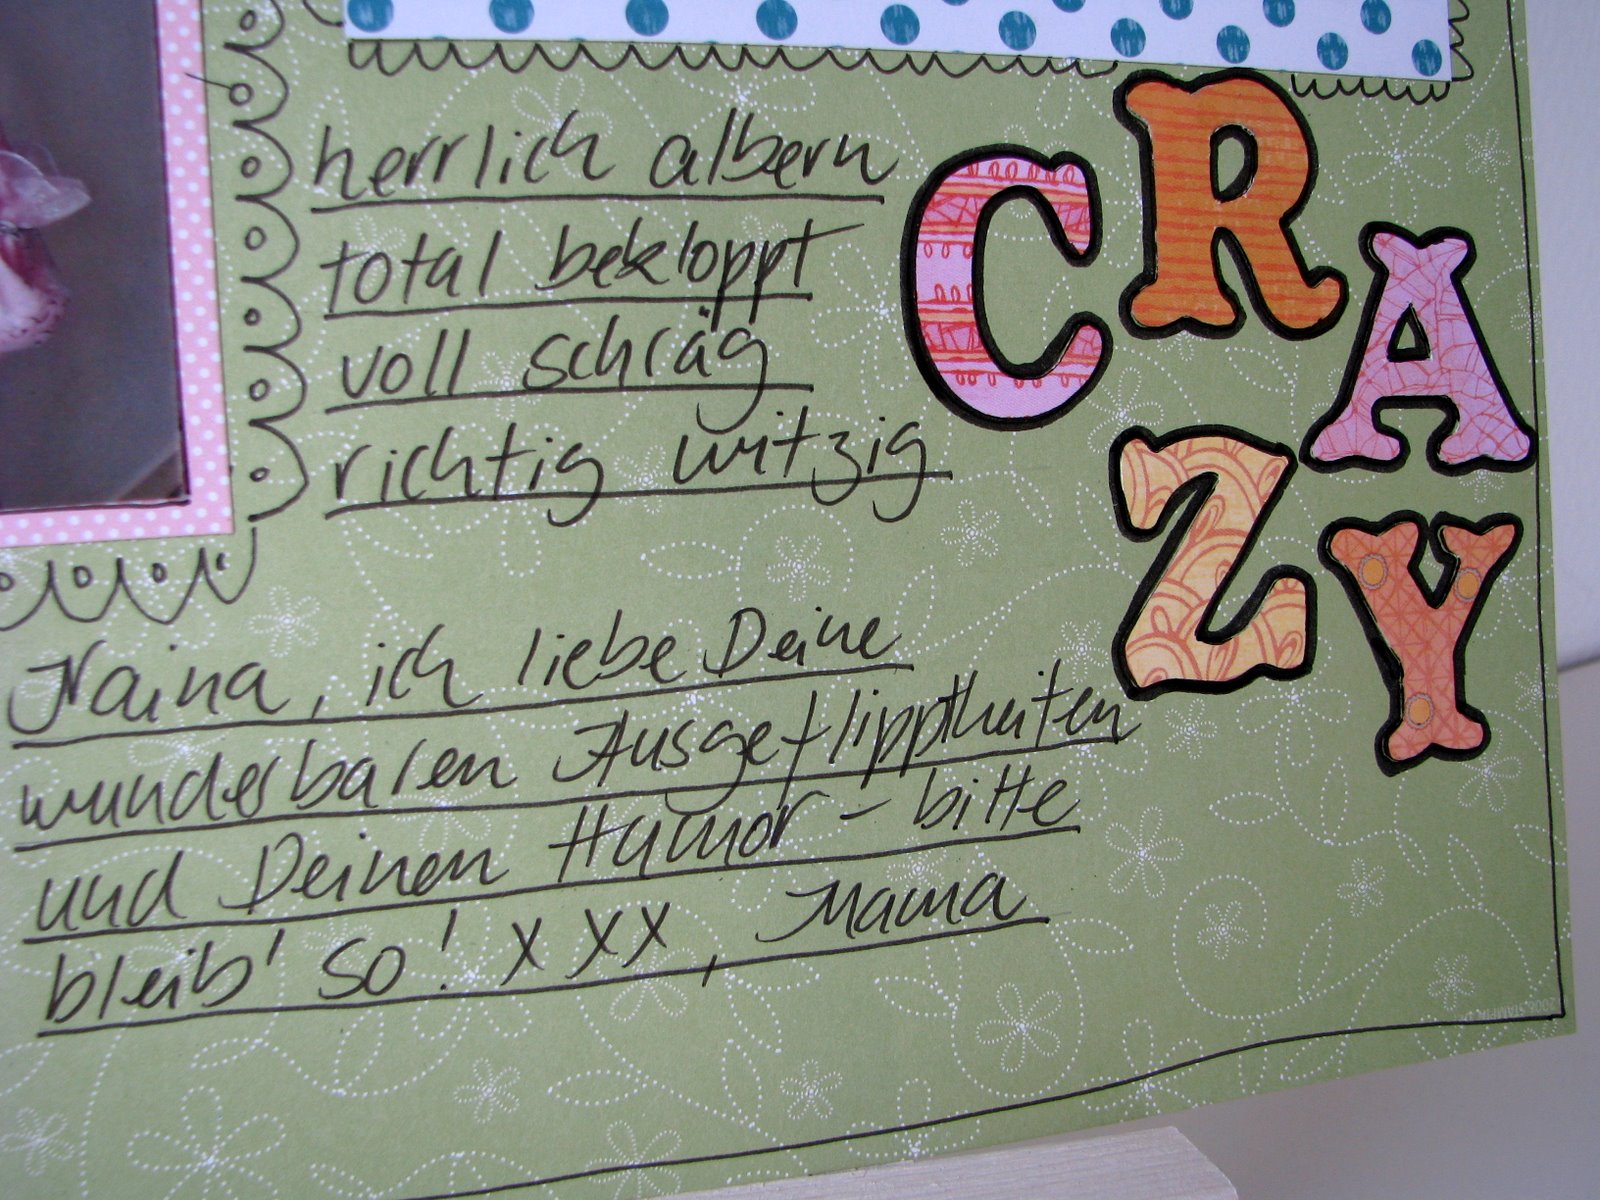 herrlich albern
total bekloppt
voll schräg
richtig witzig
CRAZY
Naina, ich liebe Deine
wunderbaren Ausgeflipptheiten
und Deinen Humor - bitte
bleib' so! xxx, Mama